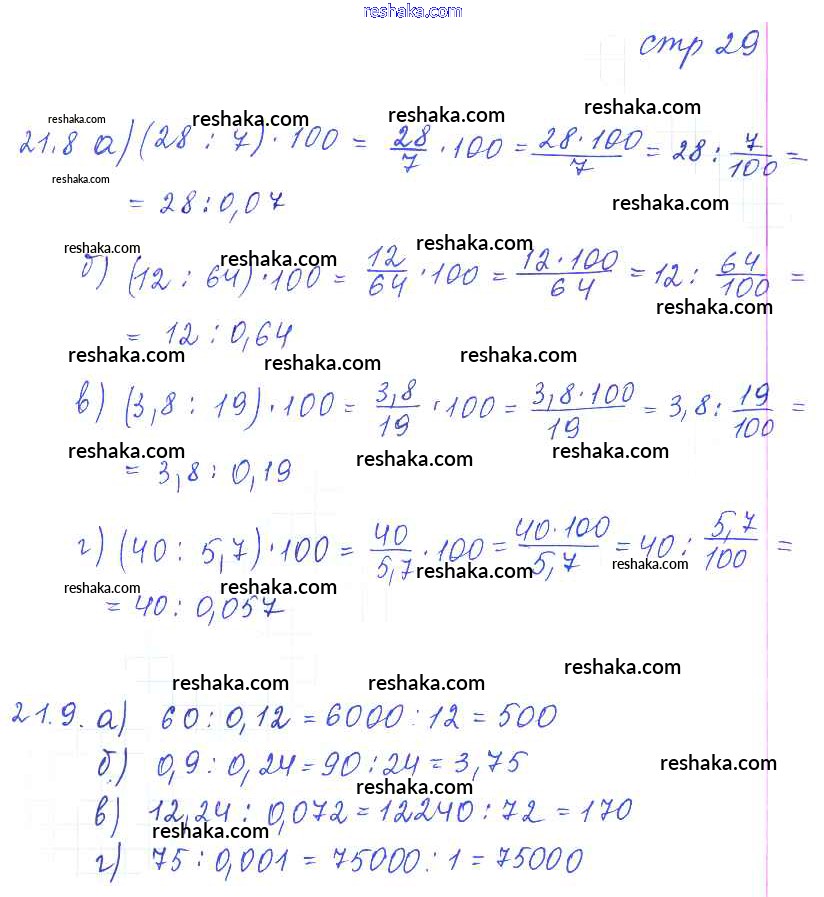 reshaka.com
стр 29
reshaka.com reshaka.com reshaka.com reshaka.com
21.8 а) (28 : 7) · 100 = 28/7 · 100 = 28·100/7 = 28 : 7/100 =
reshaka.com
= 28 : 0,07
reshaka.com
reshaka.com reshaka.com reshaka.com
б) (12 : 64) · 100 = 12/64 · 100 = 12·100/64 = 12 : 64/100 =
reshaka.com
= 12 : 0,64
reshaka.com reshaka.com reshaka.com
в) (3,8 : 19) · 100 = 3,8/19 · 100 = 3,8·100/19 = 3,8 : 19/100 =
reshaka.com reshaka.com reshaka.com
= 3,8 : 0,19
г) (40 : 5,7) · 100 = 40/5,7 · 100 = 40·100/5,7 = 40 : 5,7/100 =
reshaka.com reshaka.com reshaka.com reshaka.com
= 40 : 0,057
reshaka.com
reshaka.com reshaka.com
21.9. а) 60 : 0,12 = 6000 : 12 = 500
б) 0,9 : 0,24 = 90 : 24 = 3,75
reshaka.com
reshaka.com
в) 12,24 : 0,072 = 12240 : 72 = 170
reshaka.com
г) 75 : 0,001 = 75000 : 1 = 75000